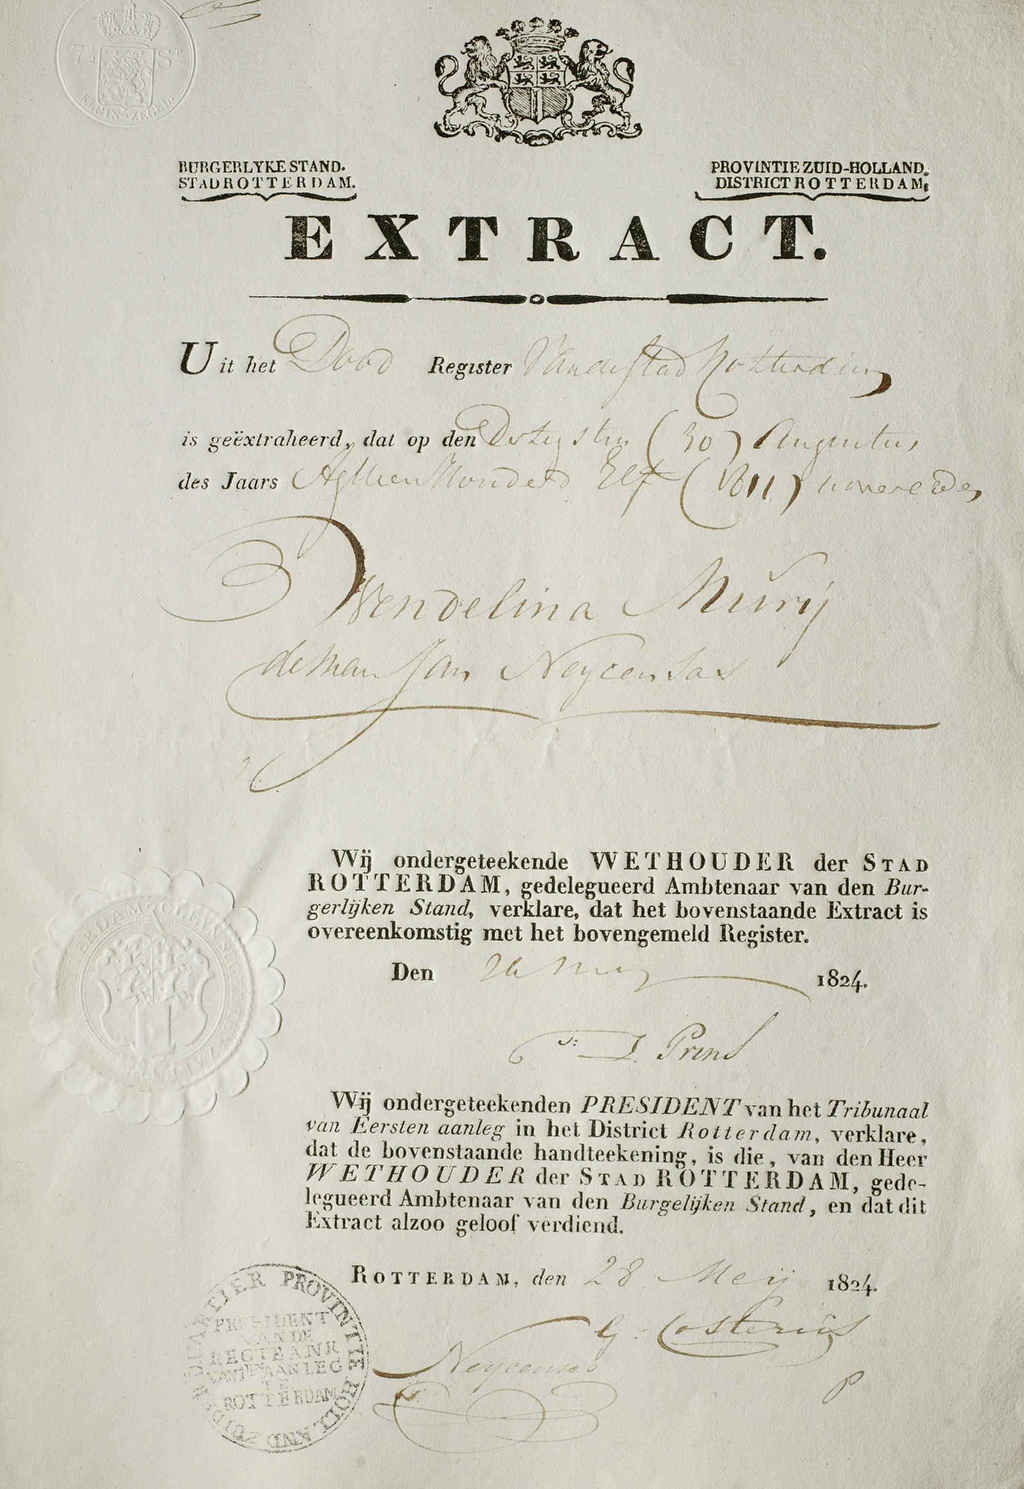 BURGERLYKE STAND.
STAD ROTTERDAM.
PROVINTIE ZUID-HOLLAND.
DISTRICT ROTTERDAM.
EXTRACT.
Uit het Dood Register Van de Stad Rotterdam
is geëxtraheerd, dat op den Dertigsten (30) Augustus
des Jaars Agttien Honderd Elf (1811)
Wendelina Murij
Jan
Wij ondergeteekende WETHOUDER der STAD
ROTTERDAM, gedelegueerd Ambtenaar van den Bur-
gerlijken Stand, verklare, dat het bovenstaande Extract is
overeenkomstig met het bovengemeld Register.
Den 26 Meij 1824.
J. Prins
Wij ondergeteekenden PRESIDENT van het Tribunaal
van Eersten aanleg in het District Rotterdam, verklare,
dat de bovenstaande handteekening, is die, van den Heer
WETHOUDER der STAD ROTTERDAM, gede-
legueerd Ambtenaar van den Burgelijken Stand, en dat dit
Extract alzoo geloof verdiend.
ROTTERDAM, den 28 Meij 1824.
G. Costerus
PROVINTIE
PRESIDENT
VAN DE
REGTBANK
TE
ROTTERDAM